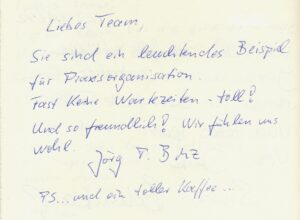 Liebes Team,
Sie sind ein leuchtendes Beispiel
für Praxisorganisation.
Fast keine Wartezeiten - toll!
Und so freundlich! Wir fühlen uns
wohl.
Jörg T.
PS...und ein toller Kaffee...